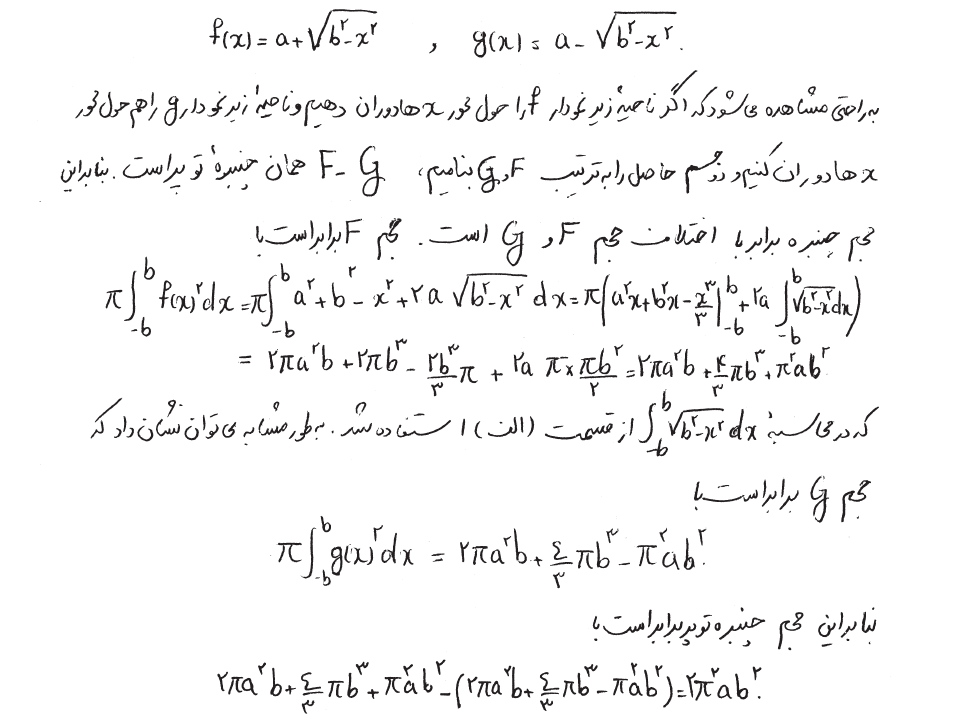 f(x) = a + √(b²-x²) , g(x) = a - √(b²-x²).
به راحتی مشاهده می‌شود که اگر ناحیهٔ زیر نمودار f را حول محور xها دوران دهیم و ناحیهٔ زیر نمودار g را هم حول محور
xها دوران کنیم و دو جسم حاصل را به ترتیب F و G بنامیم، F-G همان چنبرهٔ توپر است. بنابراین
حجم چنبره برابر با اختلاف حجم F و G است. حجم F برابر است با
π∫_{-b}^{b} f(x)^۲ dx = π∫_{-b}^{b} a^۲ + b^۲ - x^۲ + ۲a √(b^۲-x^۲) dx = π(a^۲x + b^۲x - x^۳/۳ |_{-b}^{b} + ۲a ∫_{-b}^{b} √(b^۲-x^۲) dx)
= ۲πa^۲b + ۲πb^۳ - ۲b^۳/۳ π + ۲a π × πb^۲/۲ = ۲πa^۲b + ۴/۳ πb^۳ + π^۲ab^۲
که در محاسبهٔ ∫_{-b}^{b} √(b^۲-x^۲) dx از قسمت (الف) ۱ استفاده شد. به طور مشابه می‌توان نشان داد که
حجم G برابر است با
π∫_{-b}^{b} g(x)^۲ dx = ۲πa^۲b + ۴/۳ πb^۳ - π^۲ab^۲.
بنابراین حجم چنبره توپر برابر است با
۲πa^۲b + ۴/۳ πb^۳ + π^۲ab^۲ - (۲πa^۲b + ۴/۳ πb^۳ - π^۲ab^۲) = ۲π^۲ab^۲.